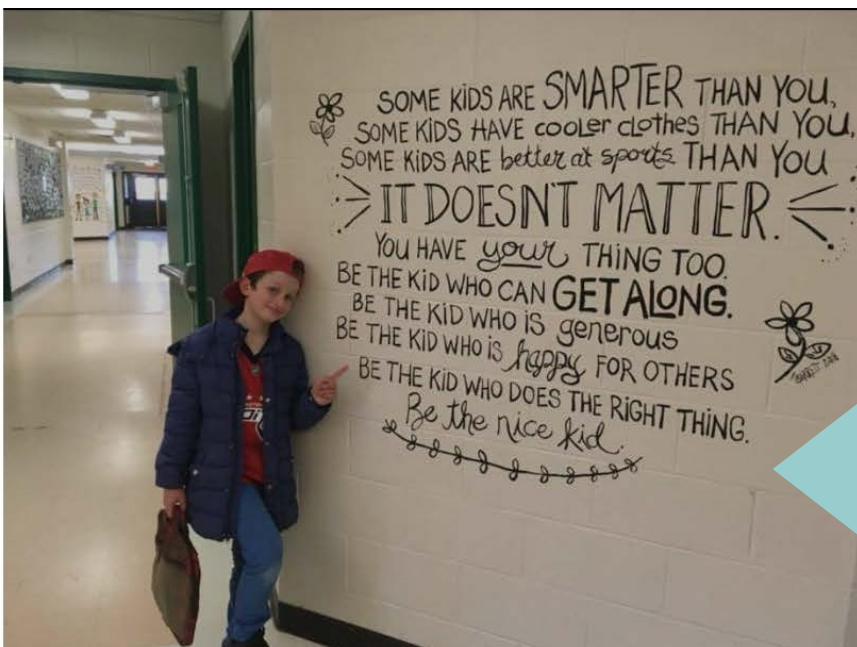 SOME KiDS ARE SMARTER THAN YOU,
SOME KIDS HAVE cooler clothes THAN YOU,
SOME KiDS ARE better at sports THAN YOU
IT DOESN'T MATTER.
YOU HAVE your THING TOO.
BE THE KID WHO CAN GET ALONG.
BE THE KiD WHO IS generous
BE THE KID WHO IS happy FOR OTHERS
BE THE KiD WHO DOES THE RIGHT THING.
Be the nice kid.